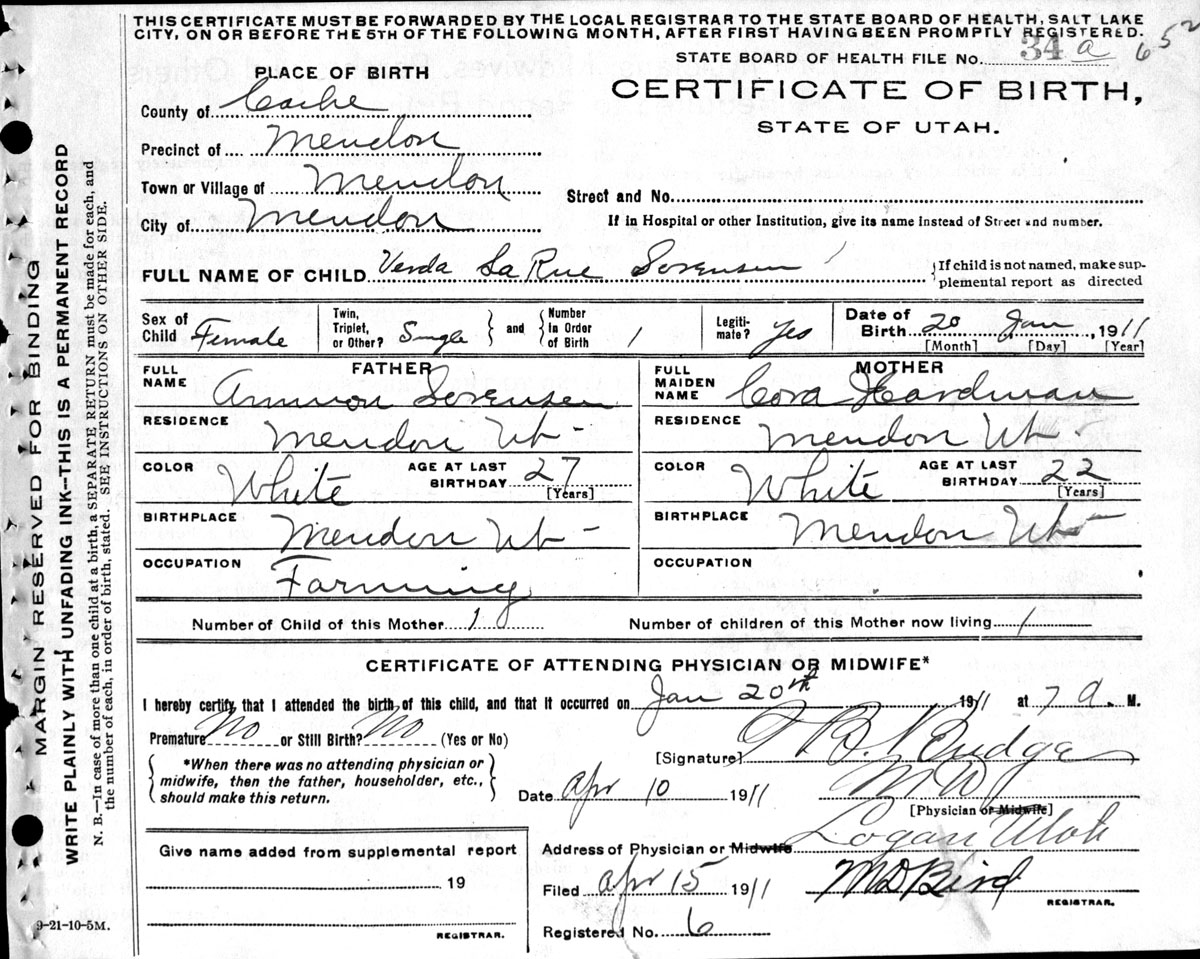 THIS CERTIFICATE MUST BE FORWARDED BY THE LOCAL REGISTRAR TO THE STATE BOARD OF HEALTH, SALT LAKE
CITY, ON OR BEFORE THE 5TH OF THE FOLLOWING MONTH, AFTER FIRST HAVING BEEN PROMPTLY REGISTERED.
STATE BOARD OF HEALTH FILE No. 34 a 652
PLACE OF BIRTH
CERTIFICATE OF BIRTH,
STATE OF UTAH.
County of Cache
Precinct of Mendon
Town or Village of Mendon
Street and No.
City of Mendon
If in Hospital or other Institution, give its name instead of Street and number.
FULL NAME OF CHILD Verda LaRue Sorensen
If child is not named, make sup-
plemental report as directed
Sex of Child Female
Twin, Triplet, or Other? Single and Number In Order of Birth 1
Legiti-mate? Yes
Date of Birth 20 Jan, 1911
[Month] [Day] [Year]
FATHER
FULL NAME Ammon Sorensen
RESIDENCE Mendon Ut-
COLOR White AGE AT LAST BIRTHDAY 27
[Years]
BIRTHPLACE Mendon Ut-
OCCUPATION Farming
MOTHER
FULL MAIDEN NAME Cora Hardman
RESIDENCE Mendon Ut-
COLOR White AGE AT LAST BIRTHDAY 22
[Years]
BIRTHPLACE Mendon Ut
OCCUPATION
Number of Child of this Mother 1 Number of children of this Mother now living 1
CERTIFICATE OF ATTENDING PHYSICIAN OR MIDWIFE*
I hereby certify, that I attended the birth of this child, and that it occurred on Jan 20th 1911 at 7 a. M.
Premature No or Still Birth? No (Yes or No)
[Signature] Budge
*When there was no attending physician or
midwife, then the father, householder, etc.,
should make this return.
Date Apr 10 1911
[Physician or Midwife]
Give name added from supplemental report
19
REGISTRAR.
Address of Physician or Midwife Logan Utah
Filed Apr 15 1911 Bird
REGISTRAR.
Registered No. 6
9-21-10-5M.
MARGIN RESERVED FOR BINDING
WRITE PLAINLY WITH UNFADING INK--THIS IS A PERMANENT RECORD
N. B.--In case of more than one child at a birth, a SEPARATE RETURN must be made for each, and
the number of each, in order of birth, stated. SEE INSTRUCTIONS ON OTHER SIDE.